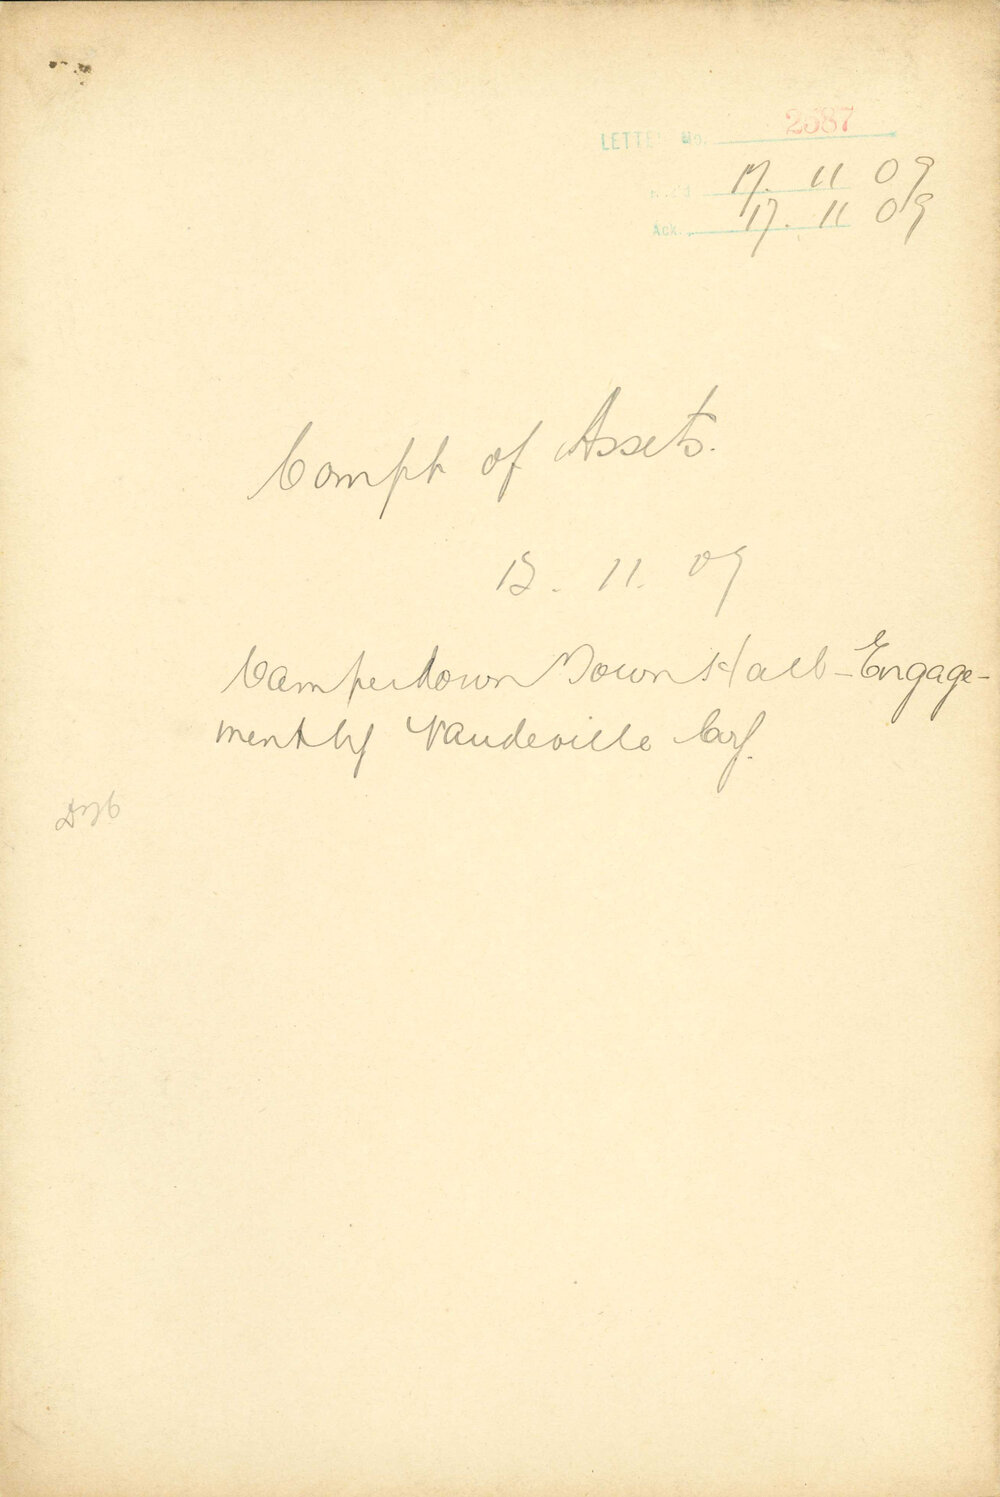 LETTER No. 2587
Rec'd 17. 11 09
Ack. 17. 11 09
Compt of Assets.
15. 11. 09
Camperdown Town Hall - Engage-
ment by Vaudeville Coy.